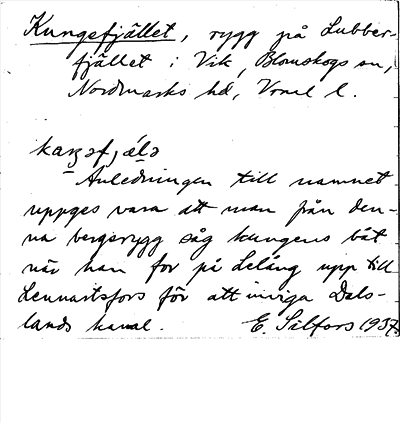 Kungsfjället, rygg på Lubber-
fjället i Vik, Blomskogs sn,
Nordmarks hd, Vrml l.
kaŋsfjälə
Anledningen till namnet
uppges vara att man från den-
na bergsrygg såg kungens båt
när han for på Lelång upp till
Lennartsfors för att inviga Dals-
lands kanal.
E. Sälfors 1937.